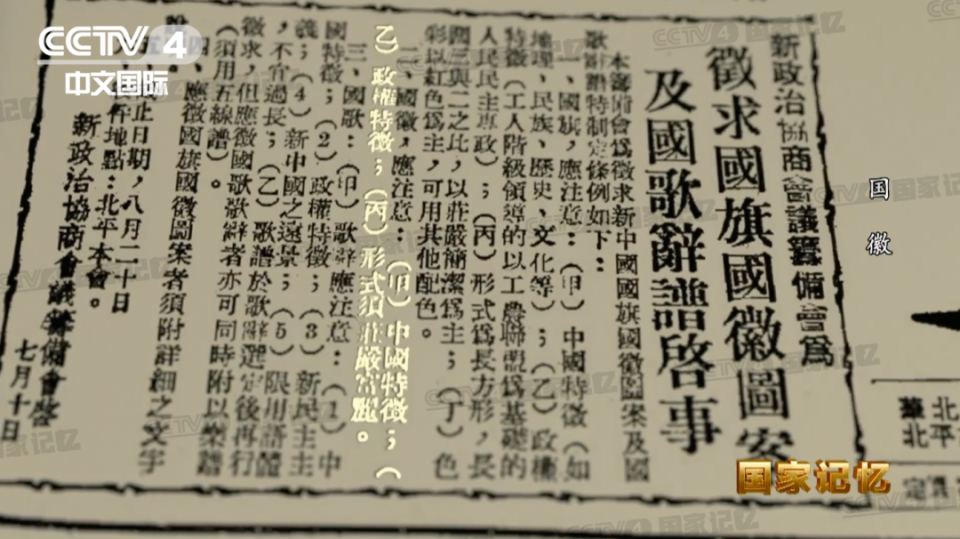 CCTV 4
中文国际
新政治協商會議籌備會爲
徵求國旗國徽圖案
及國歌辭譜啓事
本籌備會爲徵求新中國國旗國徽圖案及國
歌辭譜特制定條例如下：
一、國旗，應注意：（甲）中國特徵（如
地理、民族、歷史、文化等）；（乙）政權
特徵（工人階級領導的以工農聯盟爲基礎的
人民民主專政）；（丙）形式爲長方形，長
闊三與二之比，以莊嚴簡潔爲主；（丁）色
彩以紅色爲主，可用其他配色。
二、國徽，應注意：（甲）中國特徵；（
乙）政權特徵；（丙）形式須莊嚴富麗。
三、國歌：（甲）歌辭應注意：（1）中
國特徵；（2）政權特徵；（3）新民主主
義；（4）新中國之遠景；（5）限用語體
，不宜過長；（乙）歌譜於歌辭選定後再行
徵求，但應徵國歌歌辭者亦可同時附以樂譜
（須用五線譜）。
四、應徵國旗國徽圖案者須附詳細之文字
止日期，八月二十日
件地點：北平本會。
新政治協商會議籌備會啓
七月十日
国徽
華北
北平
国家记忆